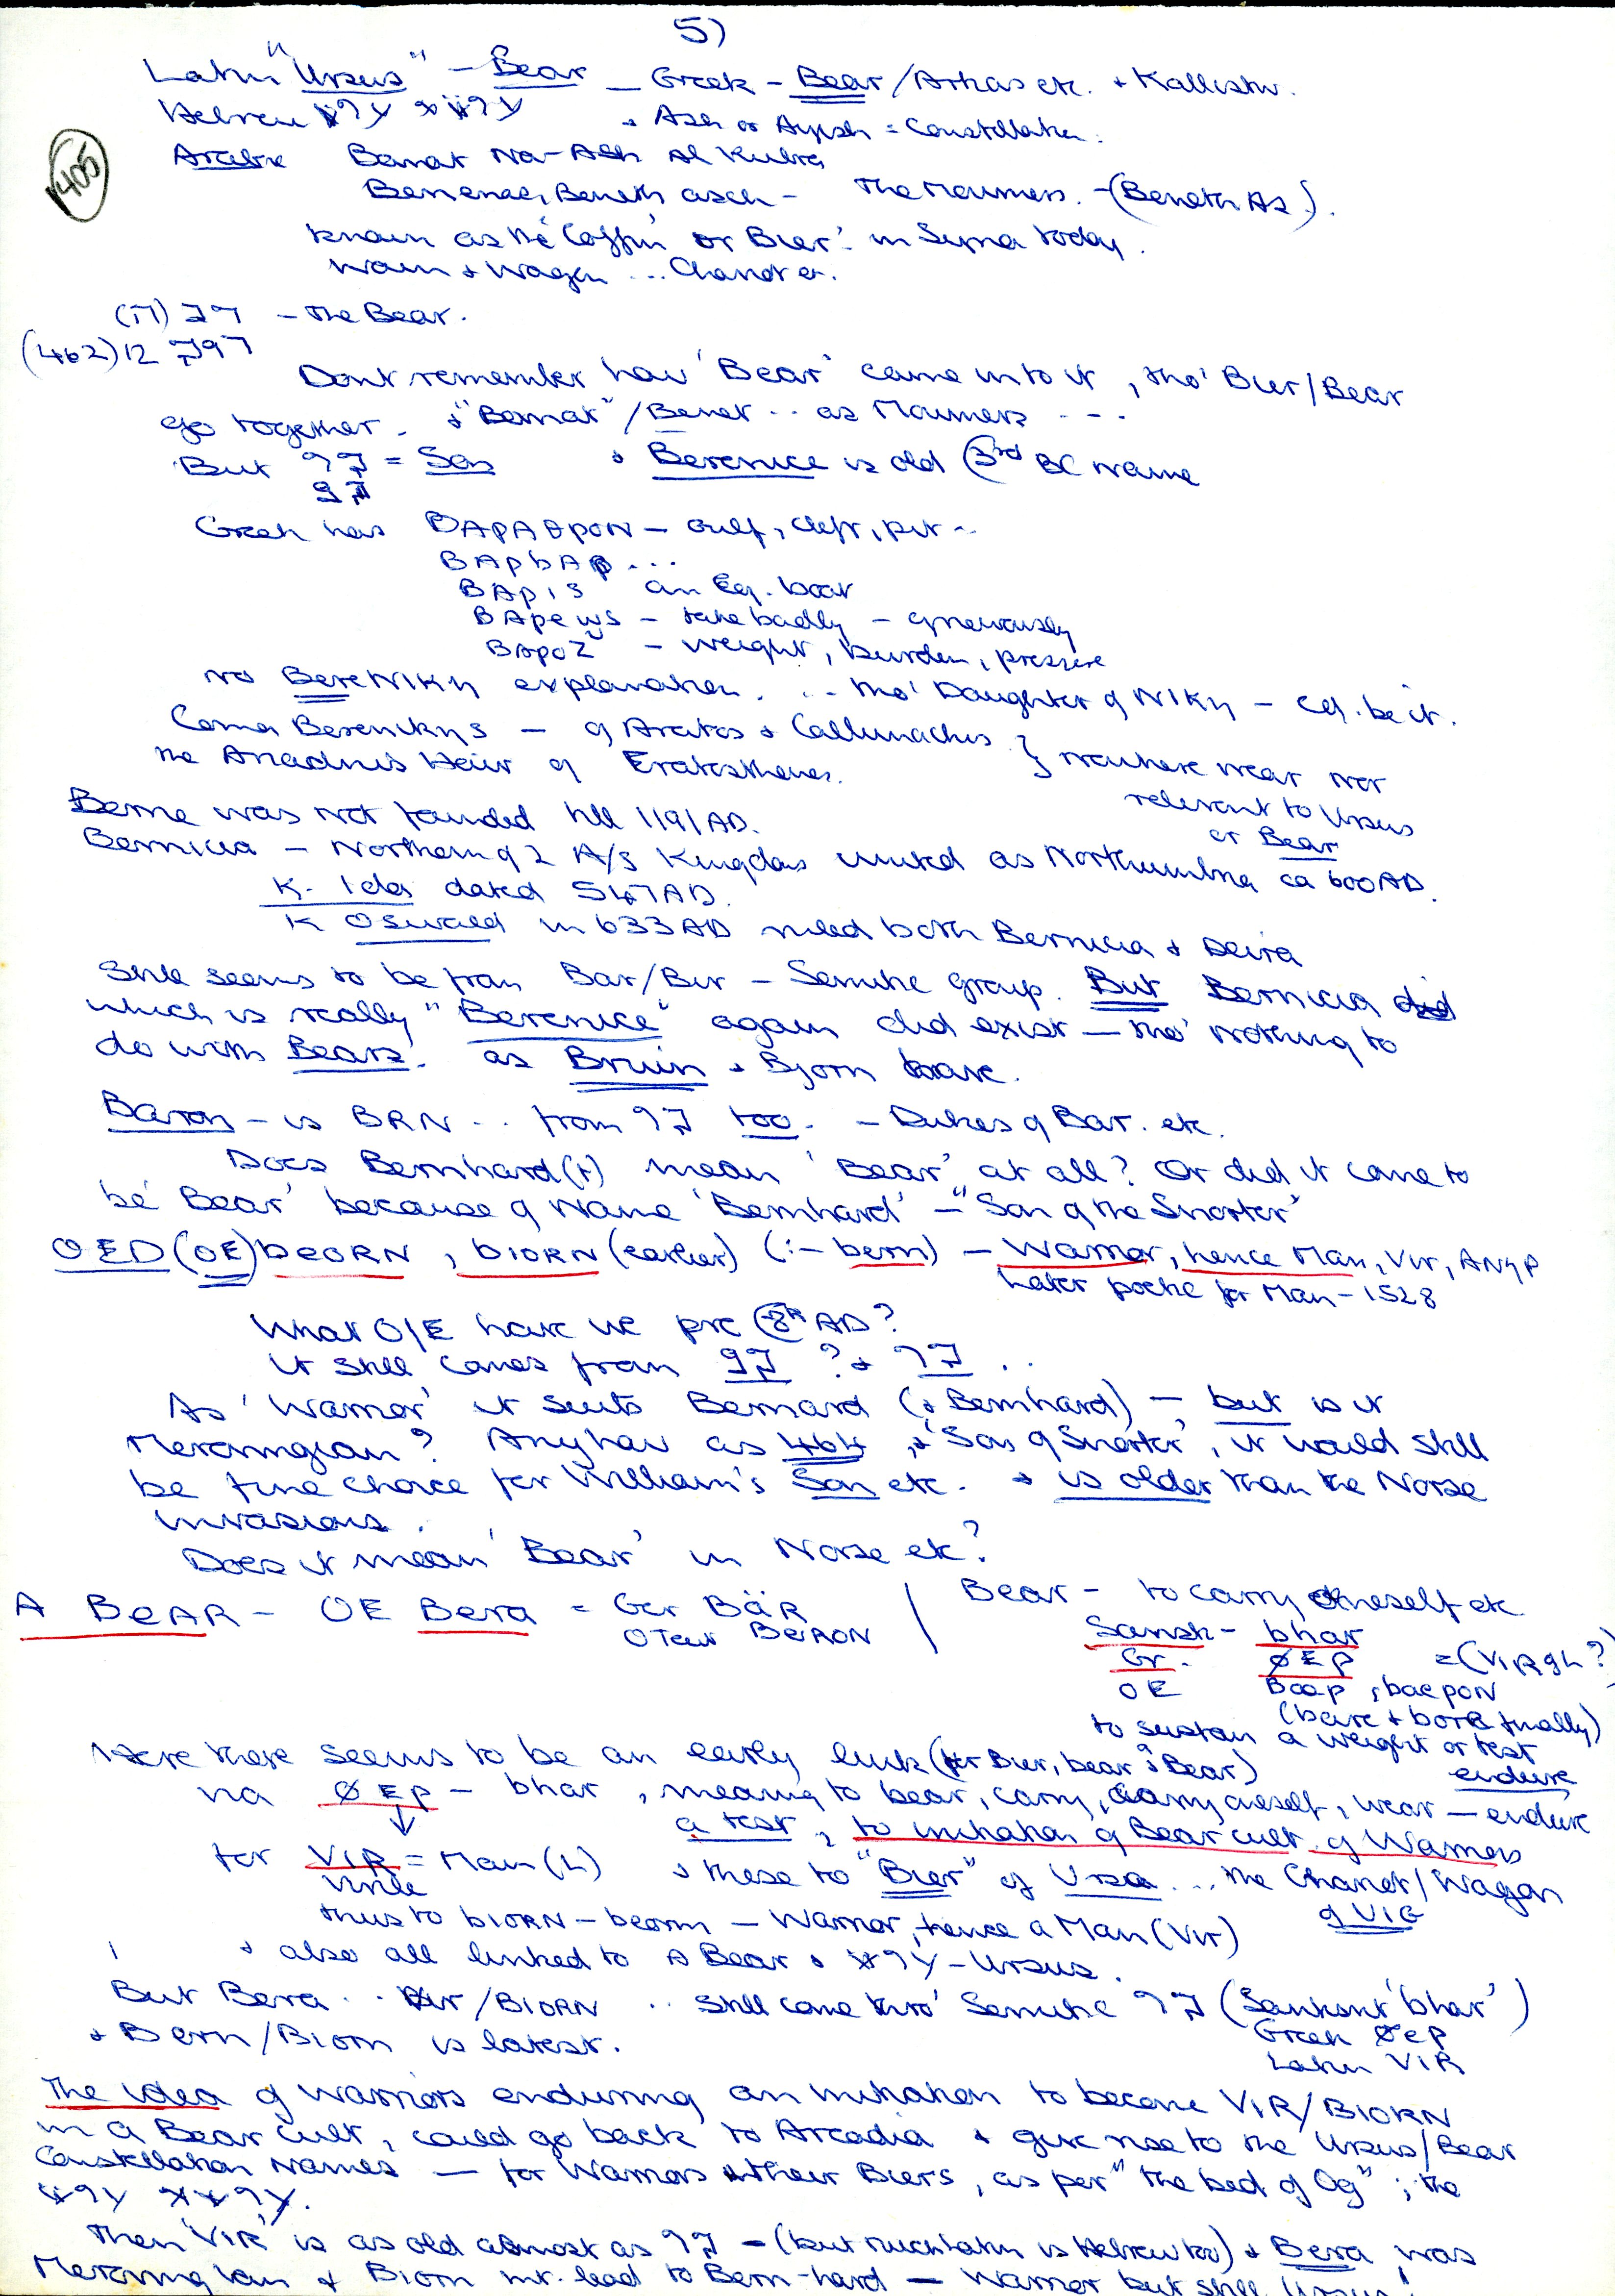 5)
Latin "Ursus" – Bear – Greek – Bear/Arkas etc. + Kallisto.
Hebrew + Ash or Ayish = Constellation.
Arabic Banat Na-Ash Al Kubra
405
Benenach, Beneth asch – The Mourners. – (Beneth As).
known as the 'Coffin' or Bier' in Syria today.
Wain & Wagen ... Chariot etc.
– The Bear.
(462) 12
Dont remember how 'Bear' came into it, tho' Bier/Bear
go together. & "Bernat"/Benet .. as Mourners ---
But = Son & Berenice is old (3rd BC name
Greek has BApAθpON – Gulf, cleft, pit --
BApbAp ...
BApis an Eg. boat
BApews – take badly – grievously
BApoΣ – weight, burden, pressure
no BereNIKη explanation. .. tho' Daughter of NIKη – cd. be it.
Coma Berenikηs – of Aratos & Callimachus } nowhere near nor
the Ariadnis Hair of Eratosthenes.
relevant to Ursus
or Bear
Berne was not founded till 1191 AD.
Bernicia – Northern of 2 A/S Kingdoms united as Northumbria ca 600 AD.
K. Ida dated 547 AD.
K Oswald in 633 AD ruled both Bernicia & Deira
Still seems to be from Bar/Bur – Semitic group. But Bernicia did
which is really "Berenice" again did exist – tho' nothing to
do with Bears. as Bruin & Bjorn have.
Baron – is BRN .. from too. – Dukes of Bar. etc.
Does Bernhard(t) mean 'Bear' at all? Or did it come to
be 'Bear' because of Name 'Bernhard' – "Son of the Snorter"
OED (OE) beORN, biORN (earlier) (:– bern) – Warrior, hence Man, Vir, ANηP
Later poetic for Man – 1528
What O/E have we pre (8th AD?
It still comes from ? & ..
As 'Warrior' it suits Bernard (& Bernhard) – but is it
Merovingian? Anyhow as 464, & 'Son of Snorter', it would still
be fine choice for William's Son etc. & is older than the Norse
invasions.
Does it mean 'Bear' in Norse etc?
A BeAR – OE Bera = Ger BäR
OTeut BeRON
Bear – to carry oneself etc
Sansk – bhar
Gr. ØEp =(VIR of L?)
OE
(bare & born finally)
to sustain a weight or test
endure
Here there seems to be an early link (for Bier, bear & Bear)
via ØEp – bhar, meaning to bear, carry, carry oneself, wear – endure
a test, to initiation of Bear cult of Warriors
for VIR = Man (L) & these to "Bier" of Ursa ... the Chariot/Wagon
Virile of VIG
thus to bIORN – beorn – Warrior, hence a Man (Vir)
& also all linked to A Bear & – Ursus.
But Bera .. Bur/BIORN .. still come thro' Semitic (Sanskrit 'bhar')
Greek Øep
Latin VIR
& Bern/Biorn is latest.
The idea of Warriors enduring an initiation to become VIR/BIORN
in a Bear cult, could go back to Arcadia & give rise to the Ursus/Bear
Constellation names – for Warriors & their Biers, as per "the bed of Og"; the
Then 'VIR' is as old almost as – (but much Latin is Hebrew too) & Bera was
Merovingian & Biorn mt. lead to Bern-hard – Warrior but still Ursus!